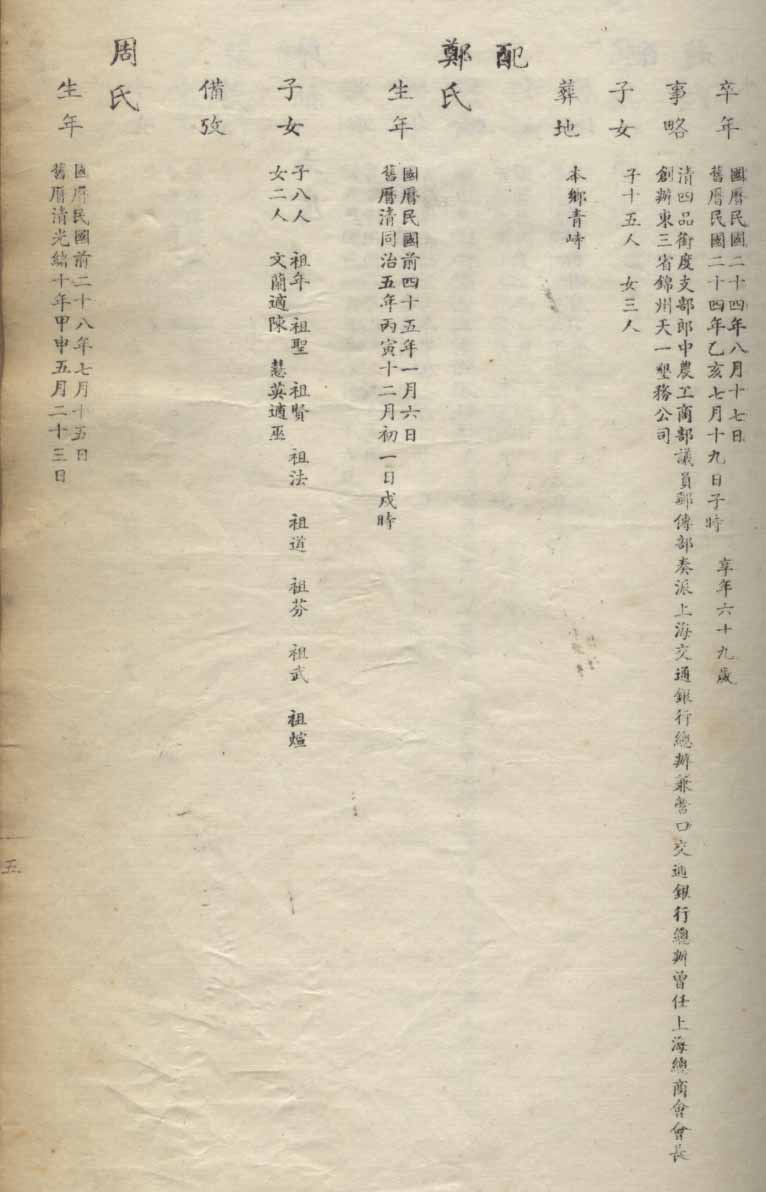 卒年
國曆民國二十四年八月十七日
舊曆民國二十四年乙亥七月十九日子時　享年六十九歲
事略
清四品銜度支部郎中農工商部議員郵傳部奏派上海交通銀行總辦兼營口交通銀行總辦曾任上海總商會會長
創辦東三省錦州天一墾務公司
子女
子十五人　女三人
葬地
本鄉青峙
配
鄭氏
生年
國曆民國前四十五年一月六日
舊曆清同治五年丙寅十二月初一日戌時
子女
子八人　祖年　祖聖　祖賢　祖法　祖道　祖芬　祖武　祖煊
女二人　文蘭適陳　慧英適巫
備攷
周氏
生年
國曆民國前二十八年七月十五日
舊曆清光緒十年甲申五月二十三日
五